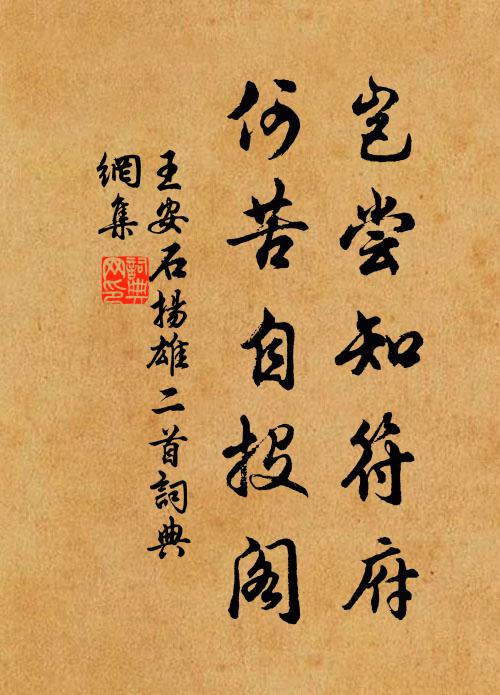 豈嘗知符府
何苦自投阁
王安石揚雄二首詞典
網集
詞典
网印